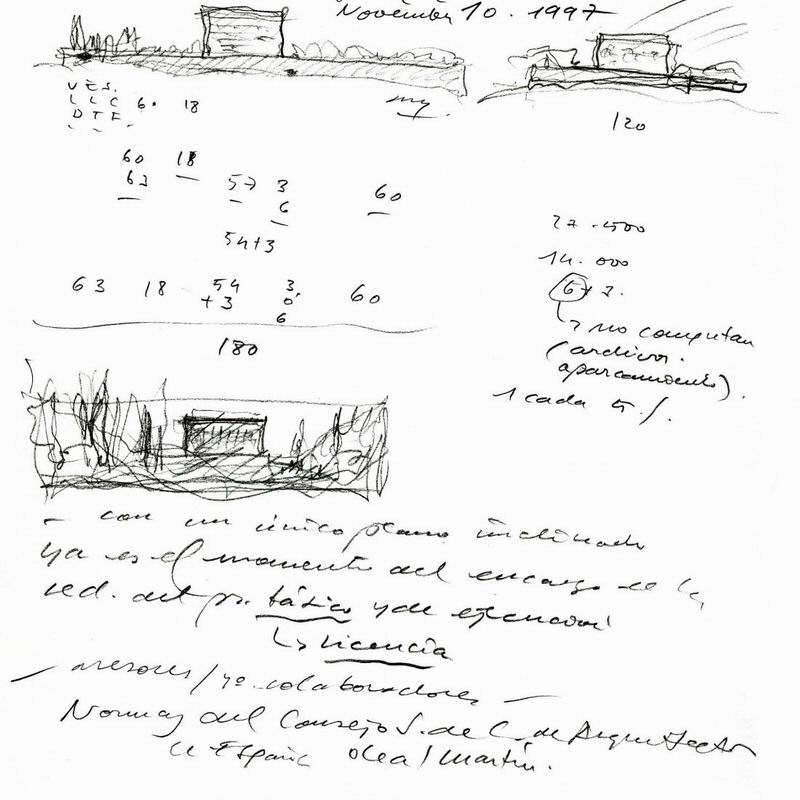 November 10. 1997
120
V E S.
L L C 6. 18
D T F.
60 18
63 57 3 60
6
54+3
63 18 54 3. 60
+3 0.
6
180
27.500
14.000
6+3.
↳ no computan
(archivos.
aparcamiento).
1 cada
- con un único plano inclinado
ya es el momento del encargo de la
red. del pr. básico y de ejecución
↳ Licencia
- asesores / yº. colaboradores -
Normas del Consejo S. de C. de Arquitectos
de España Olea / Martín.